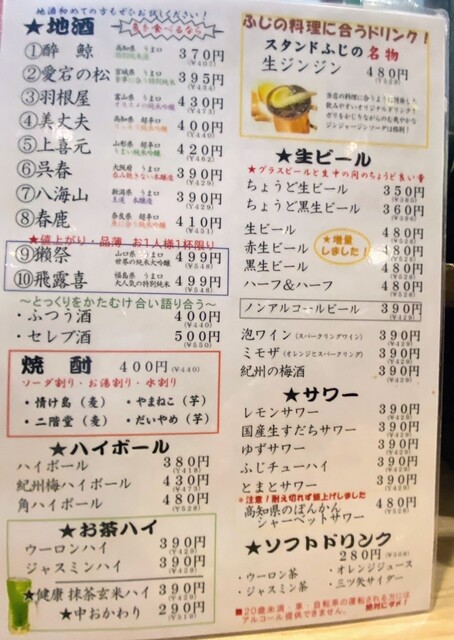 地酒初めての方もぜひお試しください!
★地酒
①酔鯨 高知県 うま口 370円
(¥407)
②愛宕の松 宮城県 うま口 395円
(¥434)
③羽根屋 富山県 うま口 430円
(¥473)
④美丈夫 高知県 超辛口 400円
(¥440)
⑤上喜元 山形県 超辛口 420円
(¥462)
⑥呉春 大阪府 うま口 390円
(¥429)
⑦八海山 新潟県 うま口 390円
(¥429)
⑧春鹿 奈良県 超辛口 410円
(¥451)
★値上がり・品薄 お1人様1杯限り
⑨獺祭 山口県 うま口 499円
世界の純米大吟醸 (¥548)
⑩飛露喜 福島県 うま口 499円
大人気の特別純米 (¥548)
～とっくりをかたむけ合い語り合う～
・ふつう酒 400円
(¥440)
・セレブ酒 500円
(¥550)
焼酎 400円(¥440)
ソーダ割り・お湯割り・水割り
・情け島(麦) ・やまねこ(芋)
・二階堂(麦) ・だいやめ(芋)
★ハイボール
ハイボール 380円
(¥418)
紀州梅ハイボール 430円
(¥473)
角ハイボール 480円
(¥528)
★お茶ハイ
ウーロンハイ 390円
(¥429)
ジャスミンハイ 390円
(¥429)
★健康 抹茶玄米ハイ 390円
(¥429)
★中おかわり 290円
(¥319)
ふじの料理に合うドリンク!
スタンドふじの名物
生ジンジン 480円
(¥528)
当店の料理に合うように開発した
飲みやすいオリジナルドリンク!
ガリをかじりながらのむ変わった
ジンジャージンソーダは格別!
★生ビール
★グラスビールと生中の間のちょうど良い量
ちょうど生ビール 350円
(¥385)
ちょうど黒生ビール 360円
(¥396)
生ビール 480円
(¥528)
赤生ビール 480円
(¥528)
黒生ビール 480円
(¥528)
ハーフ&ハーフ 480円
(¥528)
★増量しました!
ノンアルコールビール 390円
(¥429)
泡ワイン(スパークリングワイン) 390円
(¥429)
ミモザ(オレンジとスパークリング) 390円
(¥429)
紀州の梅酒 390円
(¥429)
★サワー
レモンサワー 390円
(¥429)
国産生すだちサワー 390円
(¥429)
ゆずサワー 390円
(¥429)
ふじチューハイ 390円
(¥429)
とまとサワー 390円
(¥429)
*注意!耐え切れず値上げしました
高知県のぽんかん
シャーベットサワー 480円
(¥528)
★ソフトドリンク
280円(¥308)
・ウーロン茶 ・オレンジジュース
・ジャスミン茶 ・三ツ矢サイダー
■20歳未満・車・自転車の運転される方には
アルコール提供できません。 絶対にダメ!